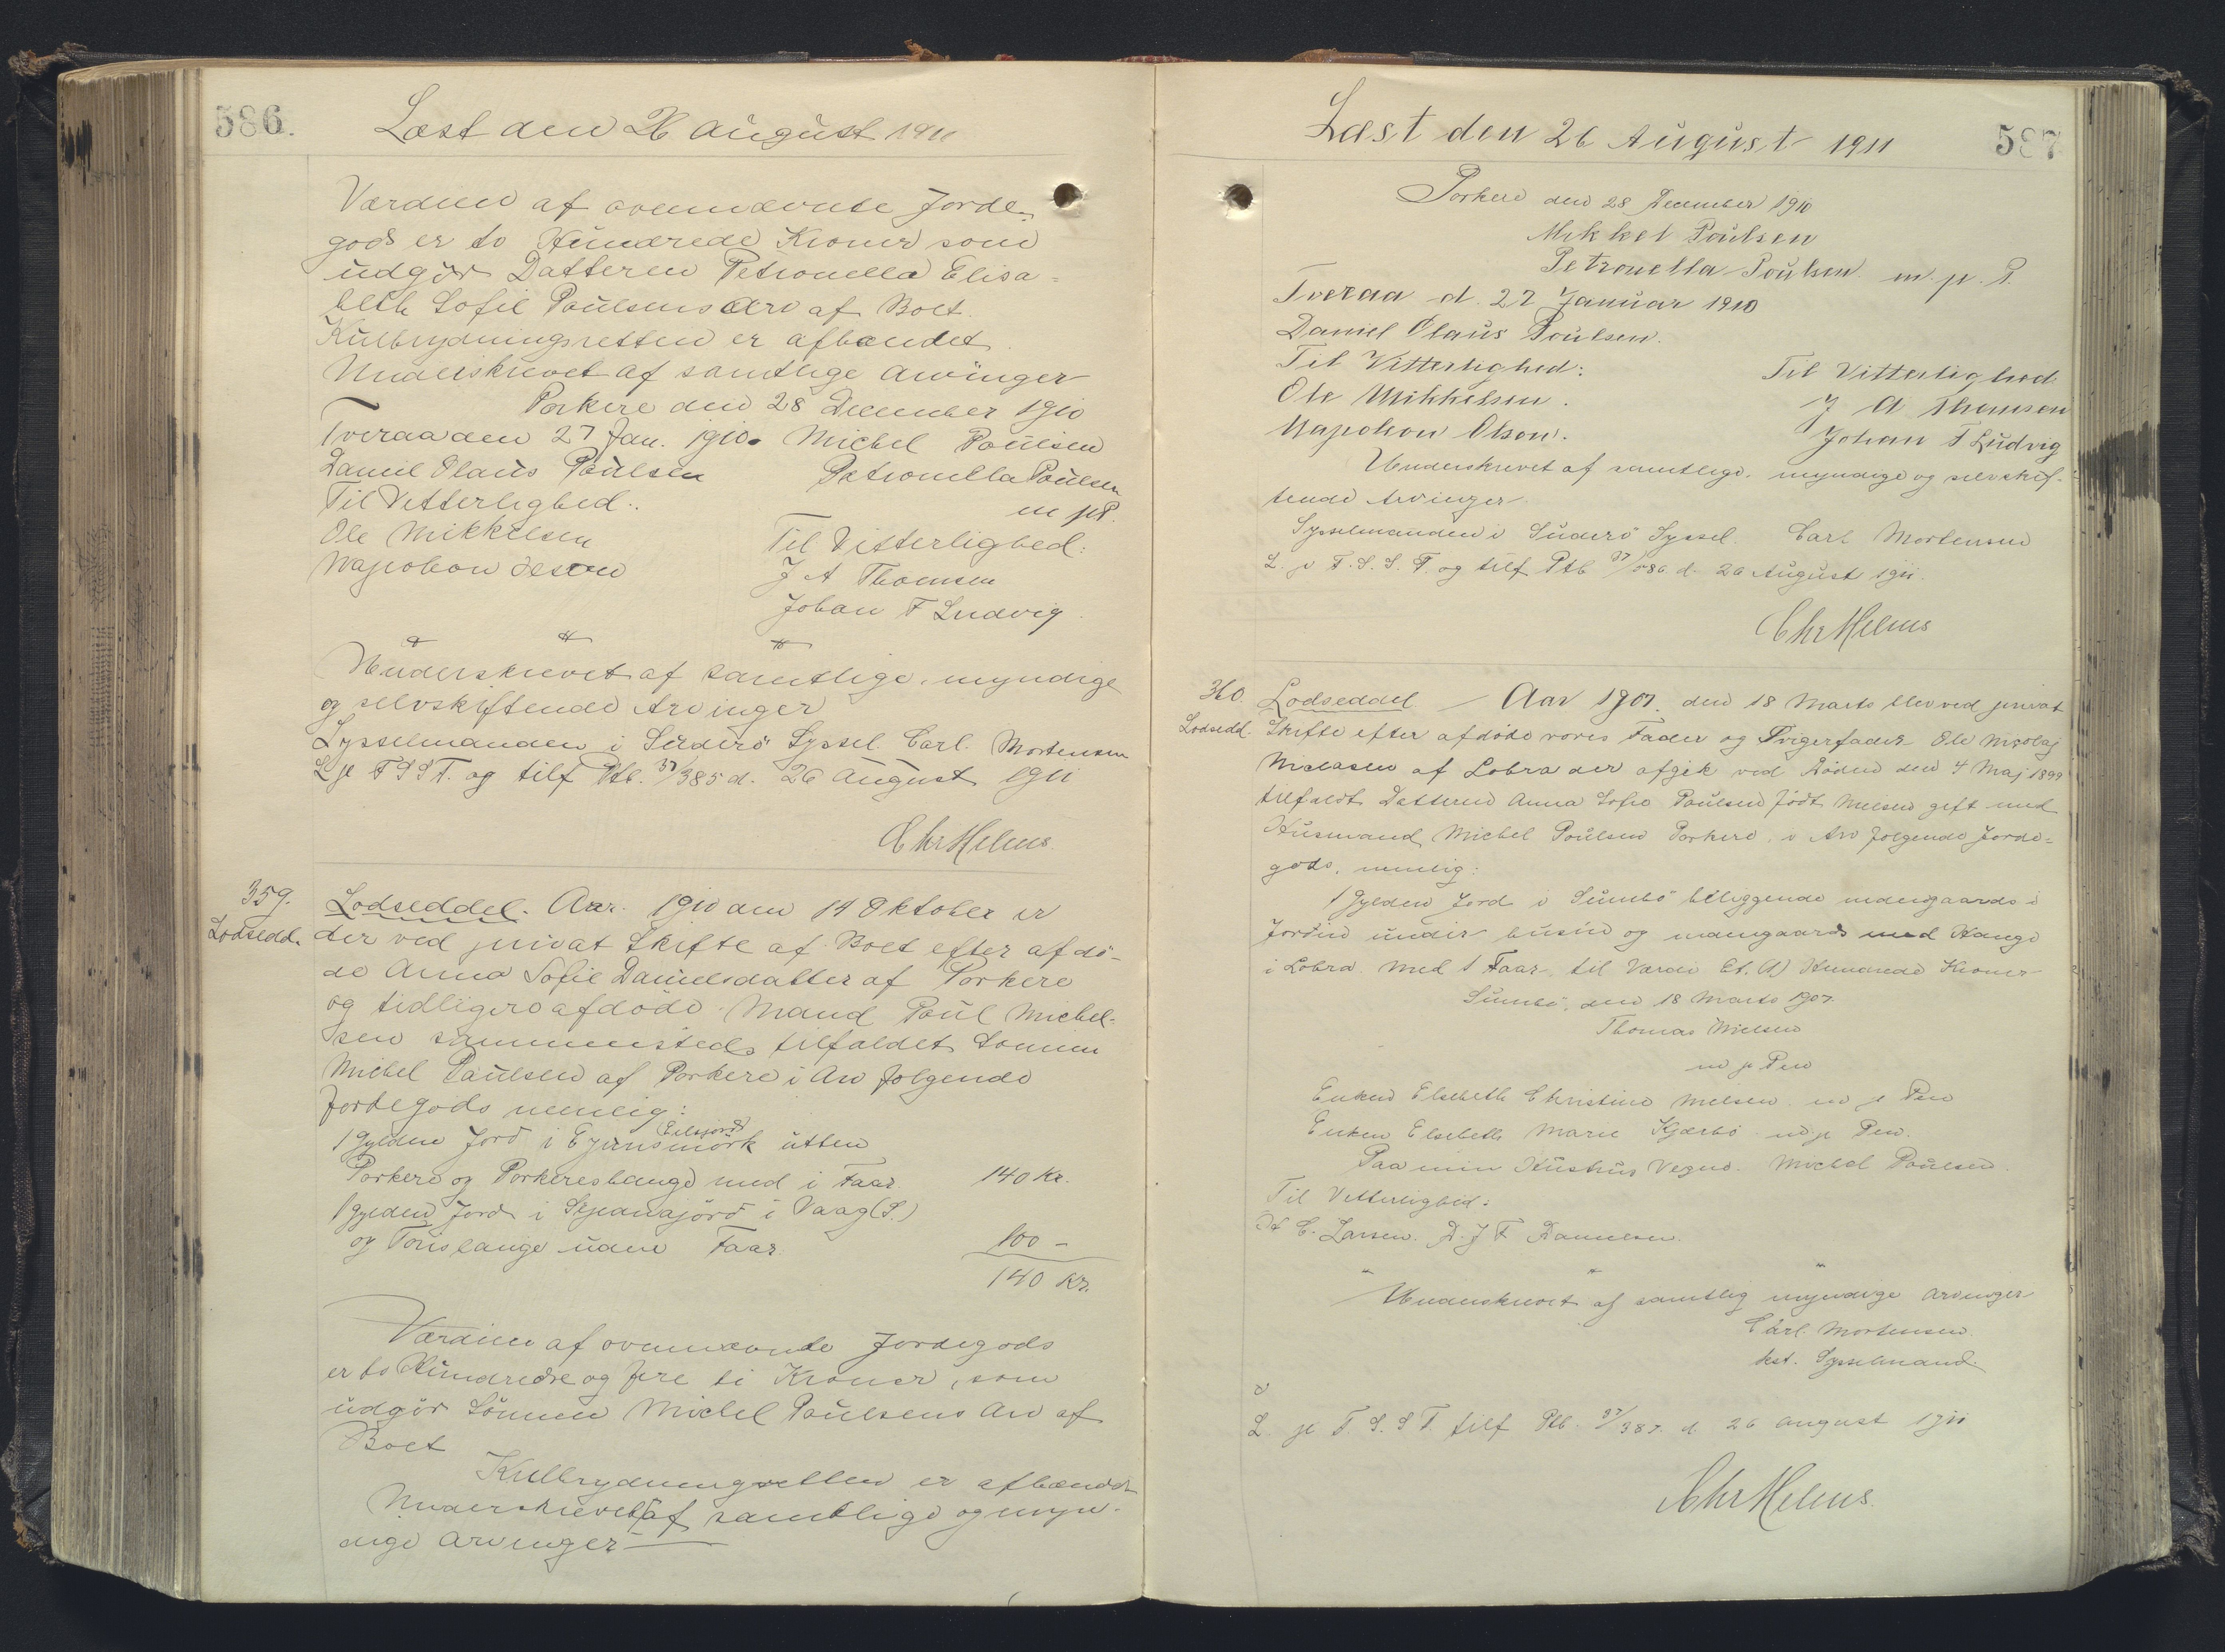 586.
Læst den 26 August 1911
Værdien af ovennævnte Jorde-
gods er to Hundrede Kroner som
udgør Datteren Petronella Elisa-
beth Sofie Poulsens Arv af Boet.
Kulbrydningsretten er afhændet.
Underskrevet af samtlige Arvinger
Porkere den 28 December 1910
Tveraa den 27 Jan. 1910. Michel Poulsen
Daniel Olaus Poulsen Petronella Poulsen
Til Vitterlighed: m p P.
Ole Mikkelsen Til Vitterlighed:
Napoleon Olson J A Thomsen
Johan F Ludvig
Underskrevet af samtlige, myndige
og selvskiftende Arvinger
Sysselmanden i Suderø Syssel. Carl. Mortensen
L p F S S T. og tilf Ptb. 37/385 d. 26 August 1911
Chr Helms.
359. Lodseddel. Aar 1910 den 14 Oktober er
Lodsedd. der ved privat Skifte af Boet efter afdø-
de Anna Sofie Danielsdatter af Porkere
og tidligere afdøde Mand Poul Michel-
sen sammesteds tilfaldet Sønnen
Michel Poulsen af Porkere i Arv følgende
Jordegods nemlig:
Eilsjord
1 Gylden Jord i mørk utten
Porkere og Porkereshauge med 1 Faar 140 Kr.
1 Gylden Jord i i Vaag (S.)
og uden Faar 100 -
140 Kr.
Værdien af ovennævnte Jordegods
er to Hundrede og fire ti Kroner, som
udgør Sønnen Michel Poulsens Arv af
Boet
Kulbrydningsretten er afhændet
Underskrevet af samtlige og myn-
dige Arvinger
Læst den 26 August 1911
587
Porkere den 28 December 1910
Mikkel Poulsen
Petronella Poulsen m. p. P.
Tveraa d. 27 Januar 1910
Daniel Olaus Poulsen.
Til Vitterlighed: Til Vitterlighed
Ole Mikkelsen. J A Thomsen
Napoleon Olson. Johan F Ludvig
Underskrevet af samtlige, myndige og selvskif-
tende Arvinger.
Sysselmanden i Suderø Syssel. Carl Mortensen
L. p F. S. S. T. og tilf Ptb 37/586 d. 26 August 1911.
Chr Helms
360 Lodseddel. Aar 1907. den 18 Marts blev ved privat
Lodsedd. Skifte efter afdøde vores Fader og Svigerfader Ole Nicolaj
Nielsen af Lobra der afgik ved Døden den 4 Maj 1899
tilfaldt Datteren Anna Sofie Poulsen født Nielsen gift med
Husmand Michel Poulsen Porkere, i Arv følgende Jorde-
gods, nemlig:
1 Gylden Jord i Sumbø beliggende indengaards i
Jorden under husin og udengaards med Hauge
i Lobra med 1 Faar til Værdi Et. (1) Hundrede Kroner
Sumbø, den 18 Marts 1907.
Thomas Nielsen
m p Pen
Enken Elsebeth Christine Nielsen m p Pen
Enken Elsebeth Marie Kjærbo m p Pen.
Paa min Hustrus Vegne. Michel Poulsen.
Til Vitterlighed:
C. Larsen. D. J F Danielsen.
Underskrevet af samtlig myndige Arvinger
Carl. Mortensen.
kst. Sysselmand.
L. p F S. S T. tilf Ptb. 37/387. d. 26 August 1911
Chr Helms.